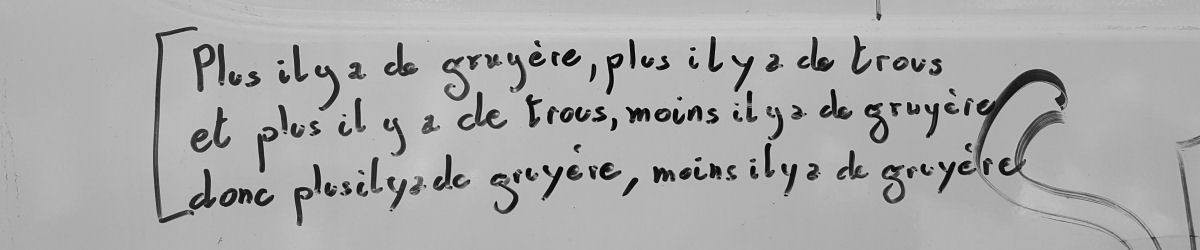 Plus il y a de gruyère, plus il y a de trous
et plus il y a de trous, moins il y a de gruyère
donc plus il y a de gruyére, moins il y a de gruyére